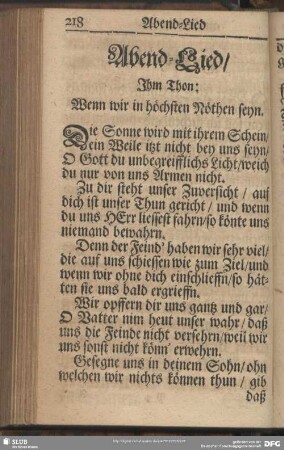 218 Abend-Lied
Abend-Lied/
Ihm Thon:
Wenn wir in höchsten Nöthen seyn.
Die Sonne wird mit ihrem Schein/
Dein Weile itzt nicht bey uns seyn/
O Gott du unbegreifflichs Licht/weich
du nur von uns Armen nicht.
Zu dir steht unser Zuversicht / auf
dich ist unser Thun gericht / und wenn
du uns HErr liessest fahrn/so könte uns
niemand bewahrn.
Denn der Feind' haben wir sehr viel/
die auf uns schiessen wie zum Ziel/und
wenn wir ohne dich einschlieffn/so hät-
ten sie uns bald ergrieffn.
Wir opffern dir uns gantz und gar/
O Vatter nim heut unser wahr/ daß
uns die Feinde nicht versehrn/weil wir
uns sonst nicht könn' erwehrn.
Gesegne uns in deinem Sohn/ohn
welchen wir nichts können thun / gib
daß
SLUB
DFG